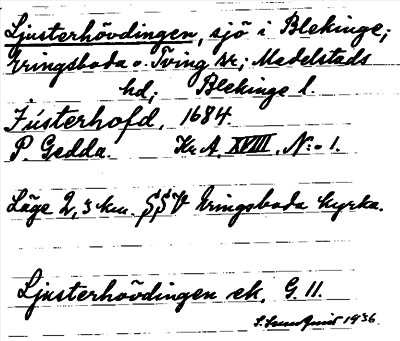 Ljusterhövdingen, sjö i Blekinge;
Eringsboda o. Tving snr; Medelstads
hd; Blekinge l.
Jústerhofd, 1684.
P. Gedda. Kr. A. XVIII, N:o 1.
Läge 2,3 km. SSV Eringsboda kyrka.
Ljusterhövdingen ek. G. 11.
1936.